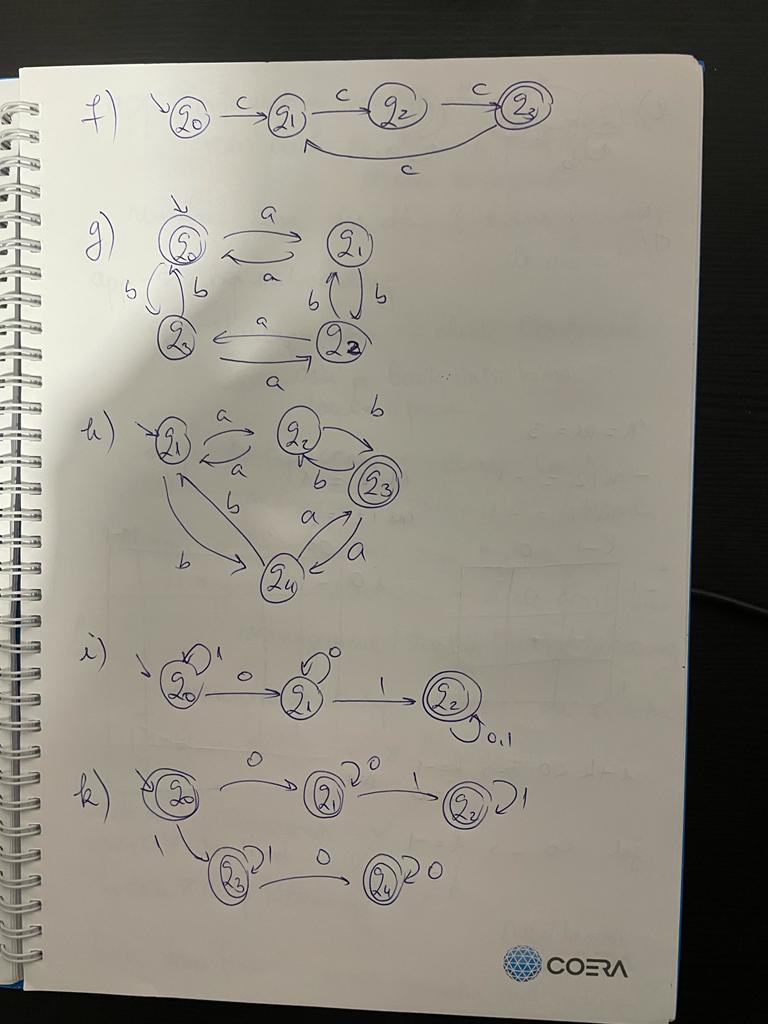 f) q0 c q1 c q2 c q3
c
g) q0 a q1
a
b b b b
q3 a q2
a
h) q1 a q2 b
a b q3
b a a
b q4
i) q0 1 0 q1 0 1 q2
0,1
k) q0 0 q1 0 1 q2 1
1 q3 1 0 q4 0
COERA